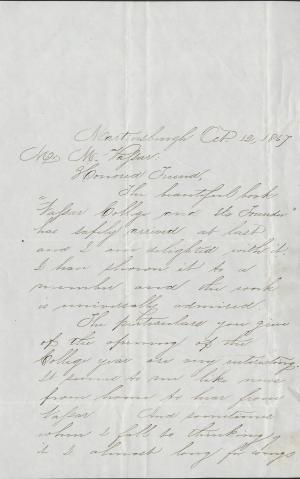 Martinsburgh Oct. 12, 1867
Mr. M. Vassar:
Honored Friend,
The beautiful book
"Vassar College and Its Founder"
has safely arrived at last
and I am delighted with it.
I have shown it to a
number and the work
is universally admired.
The particulars you give
of the opening of the
College year are very interesting.
It seems to me like news
from home to hear from
Vassar. And sometimes
when I fall to thinking of
it I almost long for wings